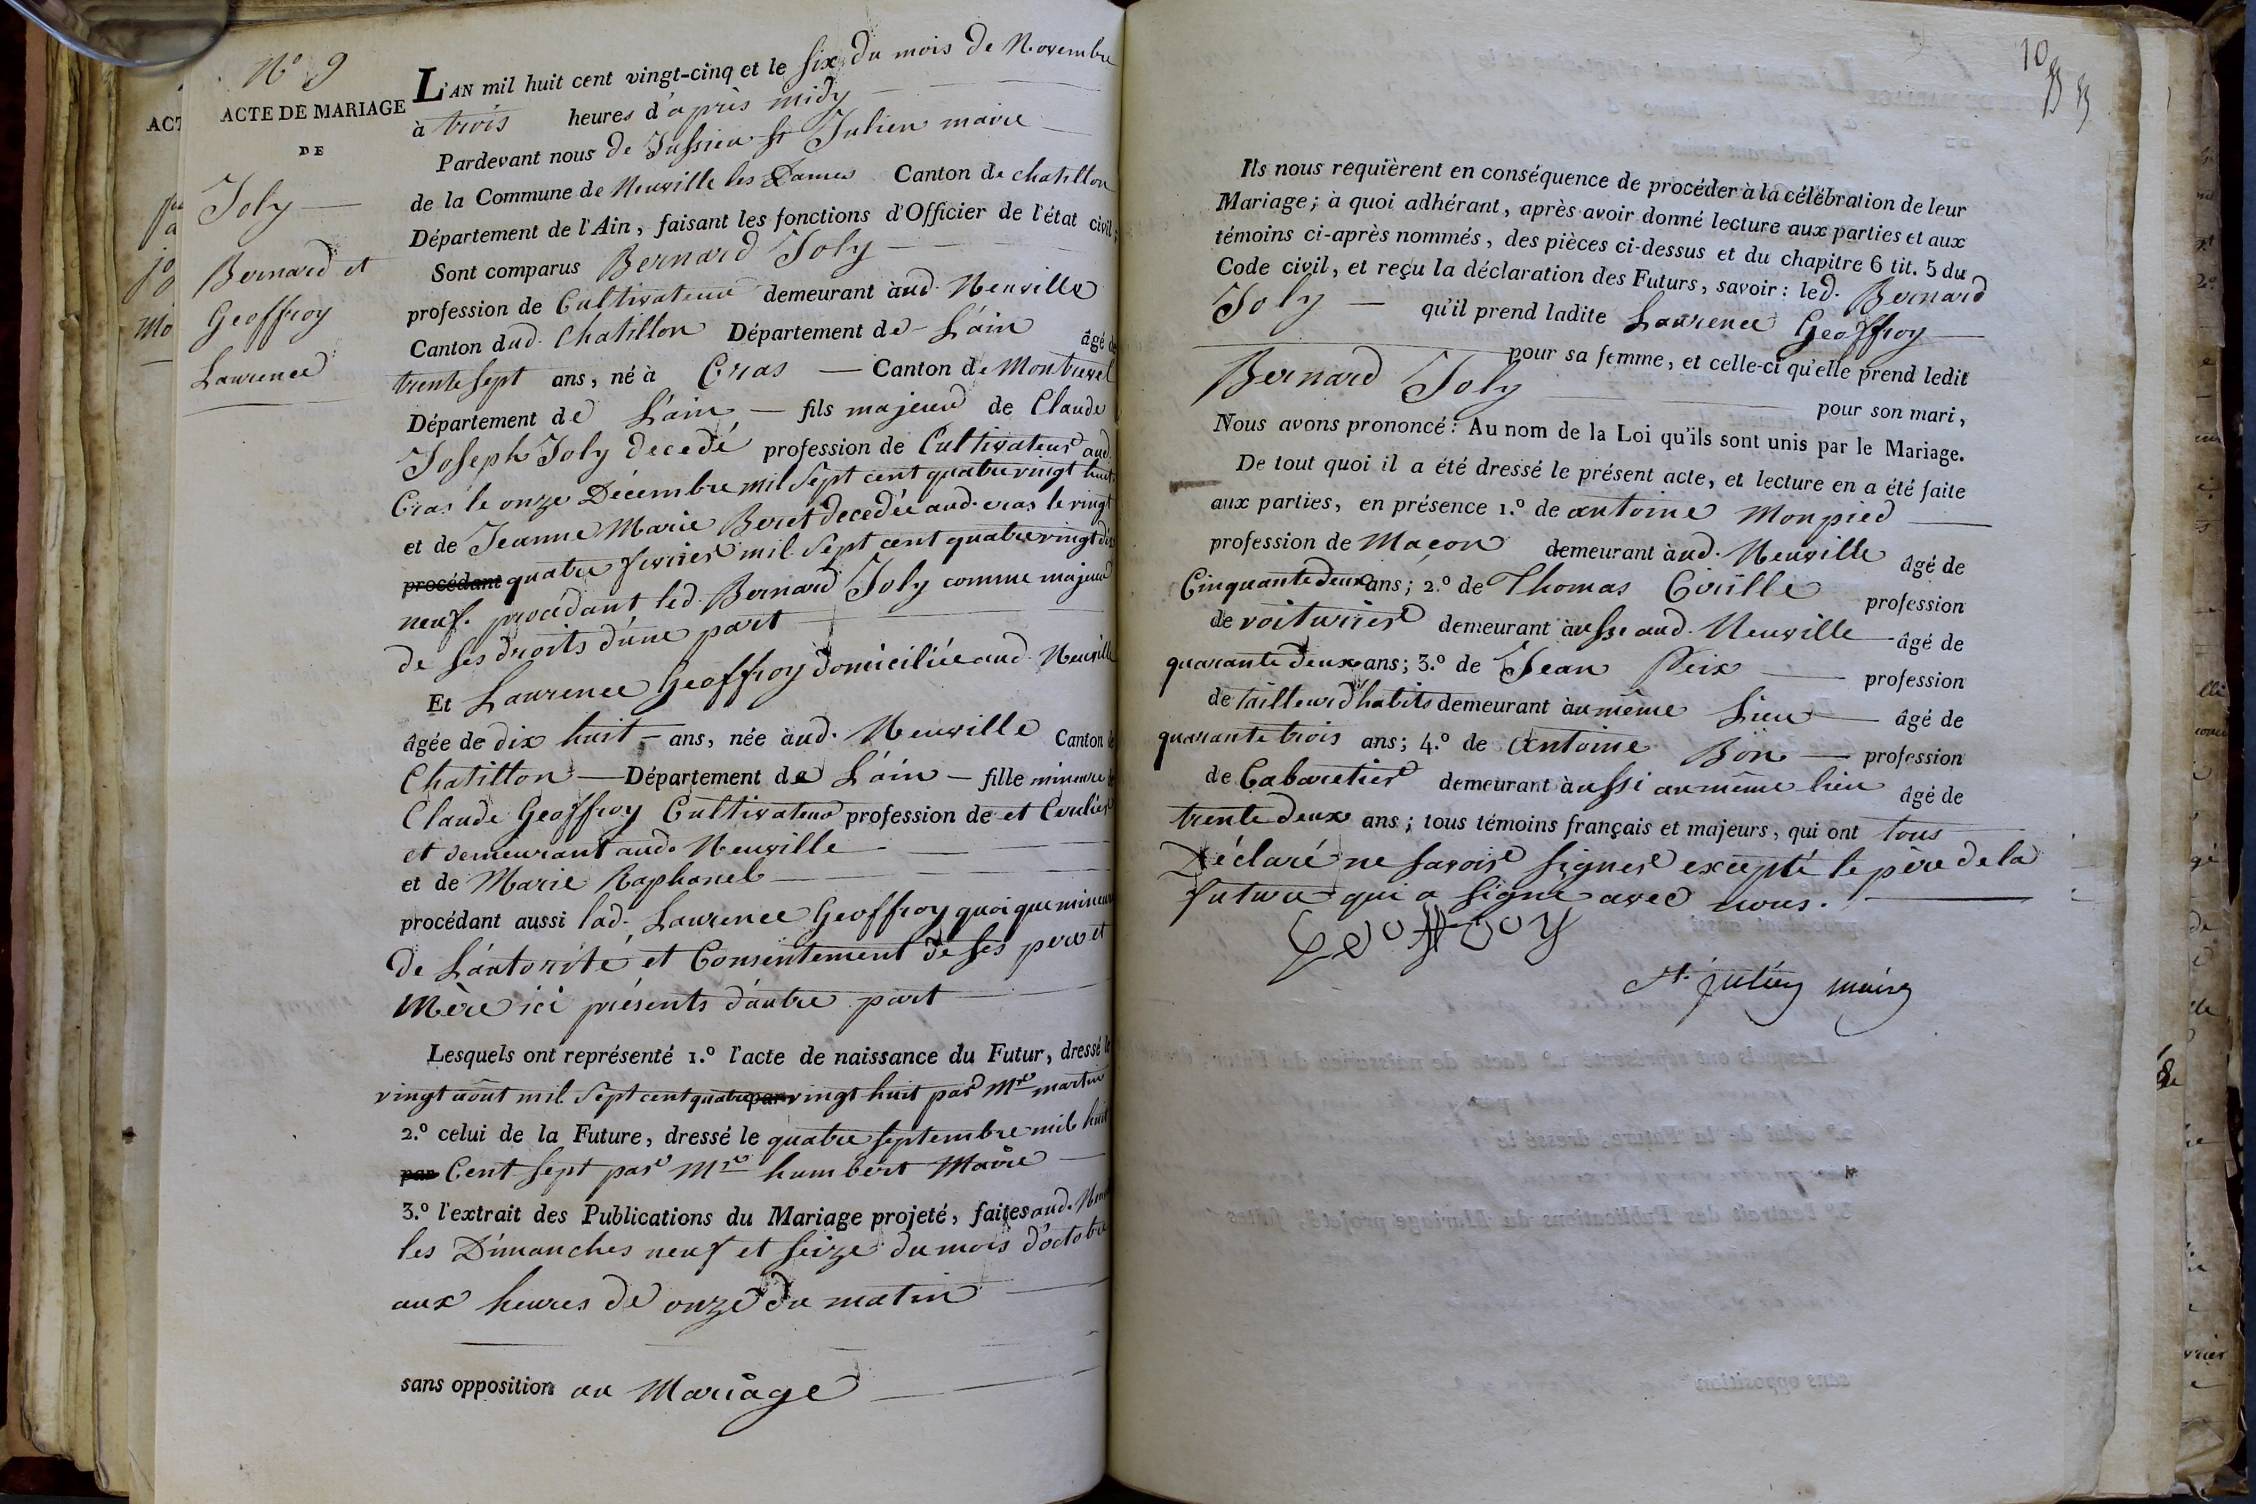 N° 9
ACTE DE MARIAGE
DE
Joly
Bernard et
Geoffroy
Laurence
L'AN mil huit cent vingt-cinq et le six du mois de Novembre
à trois heures d'après midy
Pardevant nous de Jussieu St Julien maire
de la Commune de Neuville les Dames Canton de chatillon
Département de l'Ain, faisant les fonctions d'Officier de l'état civil;
Sont comparus Bernard Joly
profession de Cultivateur demeurant aud. Neuville
Canton dud. Chatillon Département de L'ain âgé de
trente sept ans, né à Cras Canton de Montrevel
Département de L'ain fils majeur de Claude
Joseph Joly decedé profession de Cultivateur aud.
Cras le onze Décembre mil sept cent quatre vingt huit
et de Jeanne Marie Beret decedée aud. cras le vingt
procédant quatre fevrier mil sept cent quatre vingt dix
neuf. procédant led. Bernard Joly comme majeur
de ses droits d'une part
Et Laurence Geoffroy domiciliée aud. Neuville
âgée de dix huit ans, née aud. Neuville Canton de
Chatillon Département de L'ain fille mineure de
Claude Geoffroy Cultivateur profession de et
et demeurant aud. Neuville
et de Marie Raphanel
procédant aussi lad. Laurence Geoffroy quoique mineure
de L'autorité et Consentement de ses pere et
Mère ici présents d'autre part
Lesquels ont représenté 1.° l'acte de naissance du Futur, dressé le
vingt août mil sept cent quatre par vingt huit par Mre martin
2.° celui de la Future, dressé le quatre septembre mil huit
par Cent sept par Mre humbert Maire
3.° l'extrait des Publications du Mariage projeté, faites aud.
les Dimanches neuf et seize du mois d'octobre
aux heures de onze du matin
sans opposition au Mariage
10
Ils nous requièrent en conséquence de procéder à la célébration de leur
Mariage; à quoi adhérant, après avoir donné lecture aux parties et aux
témoins ci-après nommés, des pièces ci-dessus et du chapitre 6 tit. 5 du
Code civil, et reçu la déclaration des Futurs, savoir: led. Bernard
Joly qu'il prend ladite Laurence Geoffroy
pour sa femme, et celle-ci qu'elle prend ledit
Bernard Joly pour son mari,
Nous avons prononcé: Au nom de la Loi qu'ils sont unis par le Mariage.
De tout quoi il a été dressé le présent acte, et lecture en a été faite
aux parties, en présence 1.° de antoine Monpied
profession de Maçon demeurant aud. Neuville âgé de
Cinquante deux ans; 2.° de Thomas profession
de voiturier demeurant aussi aud. Neuville âgé de
quarante deux ans; 3.° de Jean profession
de tailleur d'habits demeurant au même Lieu âgé de
quarante trois ans; 4.° de Antoine Bon profession
de Cabaretier demeurant aussi au même lieu âgé de
trente deux ans; tous témoins français et majeurs, qui ont tous
Déclaré ne savoir signer excepté le père de la
future qui a signé avec nous.
Geoffroy
St. julien maire